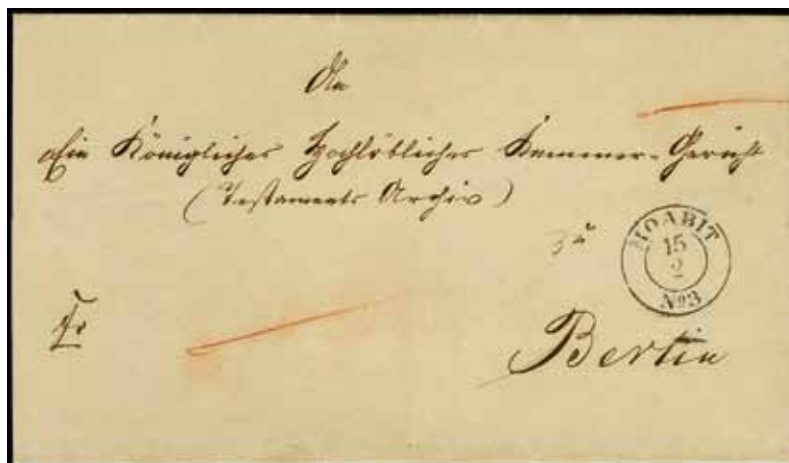 An
Ein Königliches Hochlöbliches Kammer-Gericht
(Testaments Archiv)
zu
MOABIT
15
2
No 3
fr
Berlin